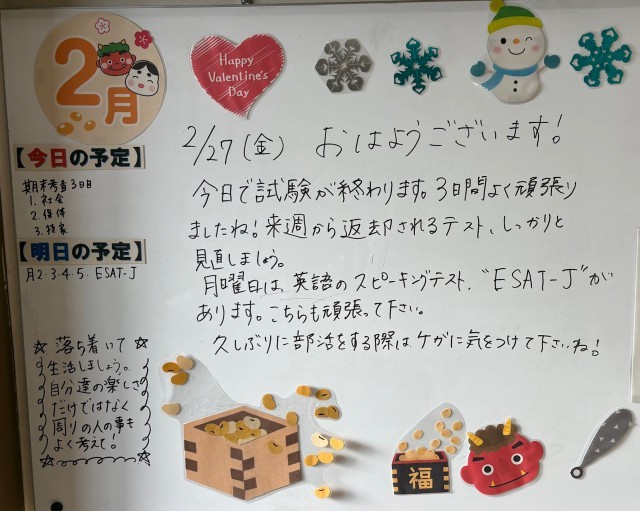 2月
Happy
Valentine's
Day
2/27(金) おはようございます!
【今日の予定】
期末考査3日目
1. 社会
2. 保体
3. 技家
【明日の予定】
月2・3・4・5. ESAT-J
今日で試験が終わります。3日間よく頑張り
ましたね!来週から返却されるテスト、しっかりと
見直しましょう。
月曜日は、英語のスピーキングテスト、“ESAT-J”が
あります。こちらも頑張って下さい。
久しぶりに部活をする際はケガに気をつけて下さいね!
☆落ち着いて☆
生活しましょう。
自分達の楽しさ
だけではなく
周りの人の事も
よく考えて!
福